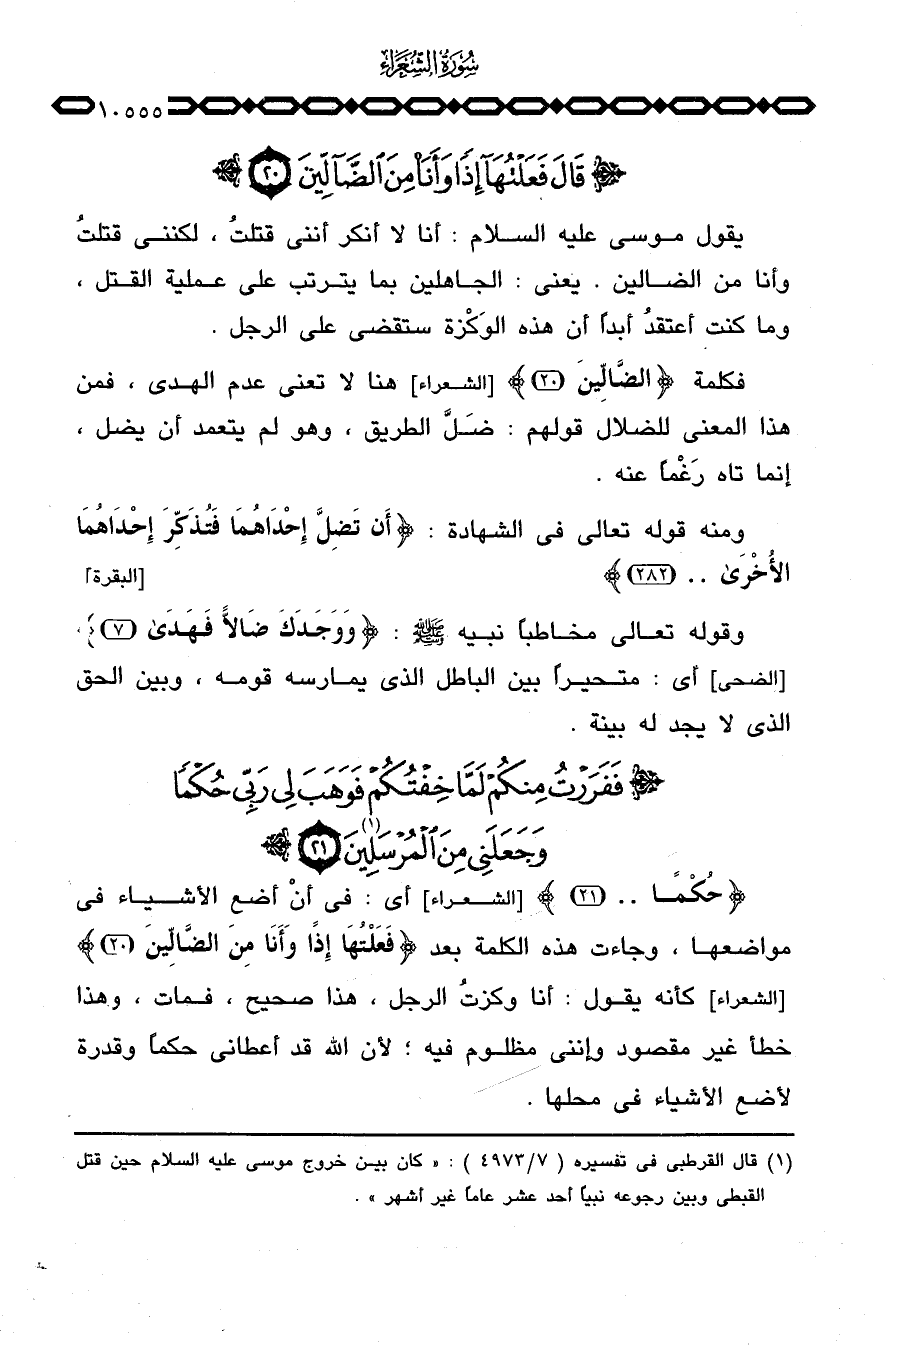 سُورَةُ الشُّعَرَاءِ
١٠٥٥٥
﴿ قَالَ فَعَلْتُهَآ إِذًا وَأَنَا۠ مِنَ ٱلضَّآلِّينَ ٢٠ ﴾
يقول مـوسى عليه السـلام : أنا لا أنكر أننى قتلتُ ، لكننـى قتلتُ
وأنا من الضـالين . يعنى : الجـاهلين بما يتـرتب على عـملية القـتل ،
وما كنت أعتقدُ أبداً أن هذه الوَكْزة ستقضى على الرجل .
فكلمة ﴿ الضَّالِّينَ (٢٠) ﴾ [الشـعراء] هنا لا تعنى عدم الهـدى ، فمن
هذا المعنى للضـلال قولهم : ضـَلَّ الطريق ، وهو لم يتعمد أن يضل ،
إنما تاه رَغْماً عنه .
ومنه قوله تعالى فى الشهادة : ﴿ أَن تَضِلَّ إِحْدَاهُمَا فَتُذَكِّرَ إِحْدَاهُمَا
الأُخْرَىٰ .. (٢٨٢) ﴾ [البقرة]
وقوله تعالى مخـاطباً نبـيه ﷺ : ﴿ وَوَجَدَكَ ضَالاًّ فَهَدَىٰ (٧) ﴾
[الضحى] أى : متـحيـراً بين الباطل الذى يمـارسه قومـه ، وبين الحق
الذى لا يجد له بينة .
﴿ فَفَرَرْتُ مِنكُمْ لَمَّا خِفْتُكُمْ فَوَهَبَ لِى رَبِّى حُكْمًا
وَجَعَلَنِى مِنَ ٱلْمُرْسَلِينَ (١) ٢١ ﴾
﴿ حُكْمـًـا .. (٢١) ﴾ [الشـعـراء] أى : فى أنْ أضع الأشـيـاء فى
مواضعهـا ، وجاءت هذه الكلمة بعد ﴿ فَعَلْتُهَا إِذًا وَأَنَا مِنَ الضَّالِّينَ (٢٠) ﴾
[الشعراء] كأنه يقـول : أنا وكزتُ الرجل ، هذا صحيح ، فـمات ، وهذا
خطأ غير مقصود وإننى مظلـوم فيه ؛ لأن الله قد أعطانى حكماً وقدرة
لأضع الأشياء فى محلها .
(١) قال القرطبى فى تفسيره ( ٧/ ٤٩٧٣ ) : « كان بيـن خروج موسى عليه السلام حين قتل
القبطى وبين رجوعه نبياً أحد عشر عاماً غير أشهر » .